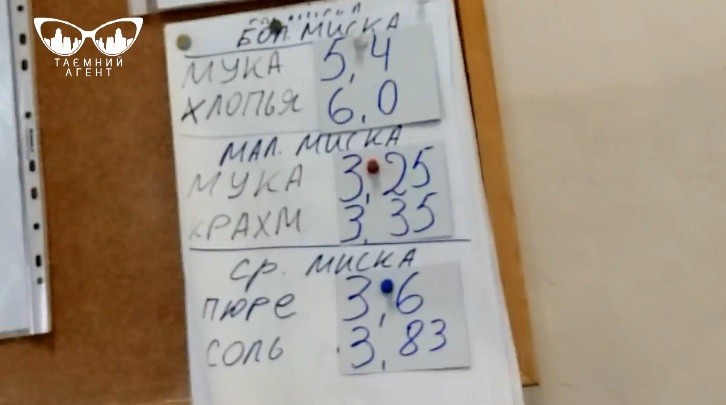 ТАЄМНИЙ
АГЕНТ
БОЛ. МИСКА
МУКА 5,4
ХЛОПЬЯ 6,0
МАЛ. МИСКА
МУКА 3,25
КРАХМ 3,35
СР. МИСКА
ПЮРЕ 3,6
СОЛЬ 3,83